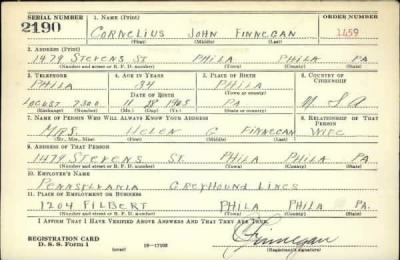 SERIAL NUMBER 1. NAME (Print) ORDER NUMBER
2190 CORNELIUS JOHN FINNEGAN 1459
(First) (Middle) (Last)
2. ADDRESS (Print)
1479 STEVENS ST PHILA PHILA PA
(Number and street or R. F. D. number) (Town) (County) (State)
3. TELEPHONE 4. AGE IN YEARS 5. PLACE OF BIRTH 6. COUNTRY OF CITIZENSHIP
PHILA 34 PHILA
DATE OF BIRTH (Town or county)
LOCUST 7300 11 18 1905 PA U.S.A
(Exchange) (Number) (Mo.) (Day) (Yr.) (State or country)
7. NAME OF PERSON WHO WILL ALWAYS KNOW YOUR ADDRESS 8. RELATIONSHIP OF THAT PERSON
MRS. HELEN G FINNEGAN WIFE
(Mr., Mrs., Miss) (First) (Middle) (Last)
9. ADDRESS OF THAT PERSON
1479 STEVENS ST. PHILA PHILA PA
(Number and street or R. F. D. number) (Town) (County) (State)
10. EMPLOYER'S NAME
PENNSYLVANIA GREYHOUND LINES
11. PLACE OF EMPLOYMENT OR BUSINESS
1204 FILBERT PHILA PHILA PA.
(Number and street or R. F. D. number) (Town) (County) (State)
I AFFIRM THAT I HAVE VERIFIED ABOVE ANSWERS AND THAT THEY ARE TRUE.
REGISTRATION CARD Finnegan
D. S. S. Form 1 (over) 16—17105 (Registrant's signature)